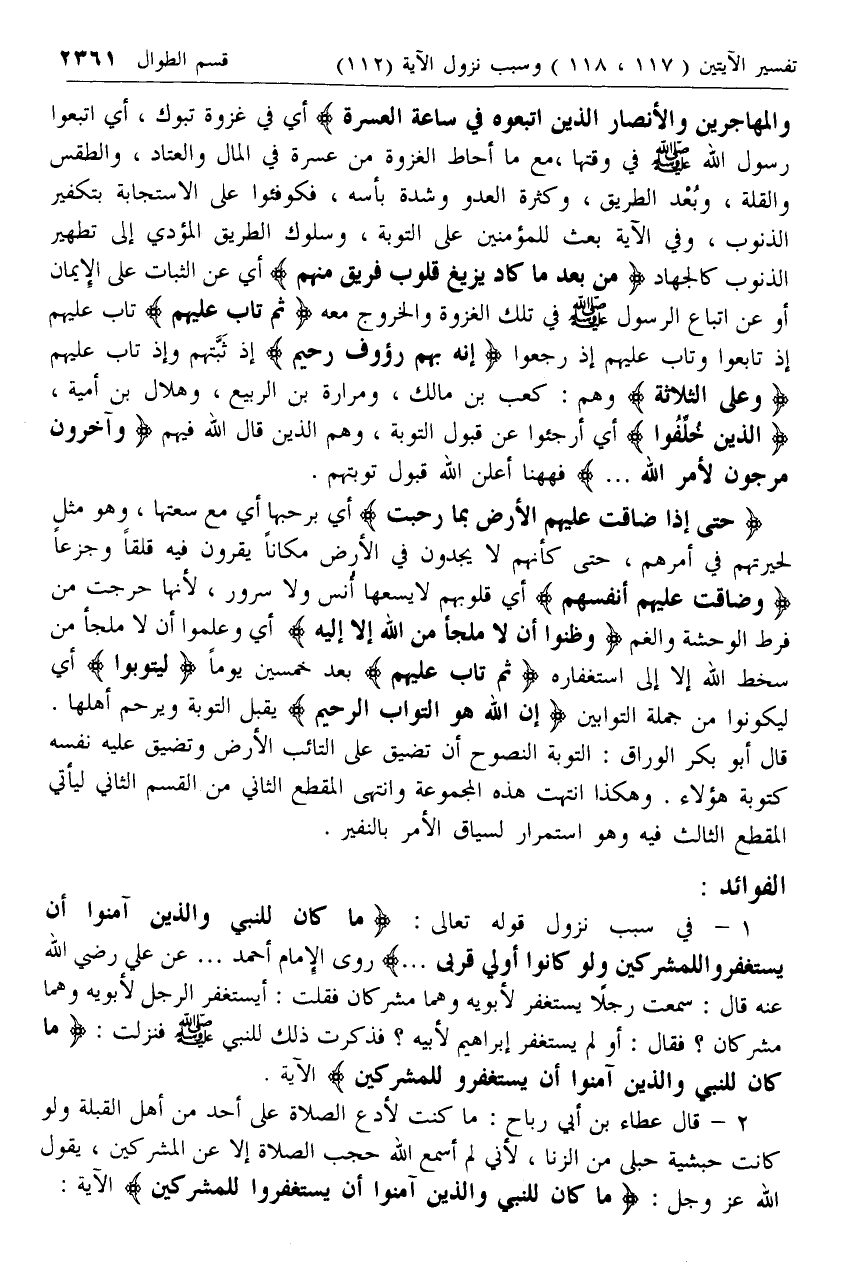 تفسير الآيتين ( ١١٧ ، ١١٨ ) وسبب نزول الآية (١١٢) قسم الطوال ٢٣٦١
والمهاجرين والأنصار الذين اتبعوه في ساعة العسرة ﴾ أي في غزوة تبوك ، أي اتبعوا
رسول الله ﷺ في وقتها ،مع ما أحاط الغزوة من عسرة في المال والعتاد ، والطقس
والقلة ، وبُعْد الطريق ، وكثرة العدو وشدة بأسه ، فكوفئوا على الاستجابة بتكفير
الذنوب ، وفي الآية بعث للمؤمنين على التوبة ، وسلوك الطريق المؤدي إلى تطهير
الذنوب كالجهاد ﴿ من بعد ما كاد يزيغ قلوب فريق منهم ﴾ أي عن الثبات على الإيمان
أو عن اتباع الرسول ﷺ في تلك الغزوة والخروج معه ﴿ ثم تاب عليهم ﴾ تاب عليهم
إذ تابعوا وتاب عليهم إذ رجعوا ﴿ إنه بهم رؤوف رحيم ﴾ إذ ثَبَّتهم وإذ تاب عليهم
﴿ وعلى الثلاثة ﴾ وهم : كعب بن مالك ، ومرارة بن الربيع ، وهلال بن أمية ،
﴿ الذين خُلِّفُوا ﴾ أي أرجئوا عن قبول التوبة ، وهم الذين قال الله فيهم ﴿ وآخرون
مرجون لأمر الله ... ﴾ فههنا أعلن الله قبول توبتهم .
﴿ حتى إذا ضاقت عليهم الأرض بما رحبت ﴾ أي برحبها أي مع سعتها ، وهو مثل
لحيرتهم في أمرهم ، حتى كأنهم لا يجدون في الأرض مكاناً يقرون فيه قلقاً وجزعاً
﴿ وضاقت عليهم أنفسهم ﴾ أي قلوبهم لايسعها أُنس ولا سرور ، لأنها حرجت من
فرط الوحشة والغم ﴿ وظنوا أن لا ملجأ من الله إلا إليه ﴾ أي وعلموا أن لا ملجأ من
سخط الله إلا إلى استغفاره ﴿ ثم تاب عليهم ﴾ بعد خمسين يوماً ﴿ ليتوبوا ﴾ أي
ليكونوا من جملة التوابين ﴿ إن الله هو التواب الرحيم ﴾ يقبل التوبة ويرحم أهلها .
قال أبو بكر الوراق : التوبة النصوح أن تضيق على التائب الأرض وتضيق عليه نفسه
كتوبة هؤلاء . وهكذا انتهت هذه المجموعة وانتهى المقطع الثاني من القسم الثاني ليأتي
المقطع الثالث فيه وهو استمرار لسياق الأمر بالنفير .
الفوائد :
١ – في سبب نزول قوله تعالى : ﴿ ما كان للنبي والذين آمنوا أن
يستغفرواللمشركين ولو كانوا أولي قربى ...﴾ روى الإمام أحمد ... عن علي رضي الله
عنه قال : سمعت رجلًا يستغفر لأبويه وهما مشركان فقلت : أيستغفر الرجل لأبويه وهما
مشركان ؟ فقال : أو لم يستغفر إبراهيم لأبيه ؟ فذكرت ذلك للنبي ﷺ فنزلت : ﴿ ما
كان للنبي والذين آمنوا أن يستغفرو للمشركين ﴾ الآية .
٢ – قال عطاء بن أبي رباح : ما كنت لأدع الصلاة على أحد من أهل القبلة ولو
كانت حبشية حبلى من الزنا ، لأني لم أسمع الله حجب الصلاة إلا عن المشركين ، يقول
الله عز وجل : ﴿ ما كان للنبي والذين آمنوا أن يستغفروا للمشركين ﴾ الآية :